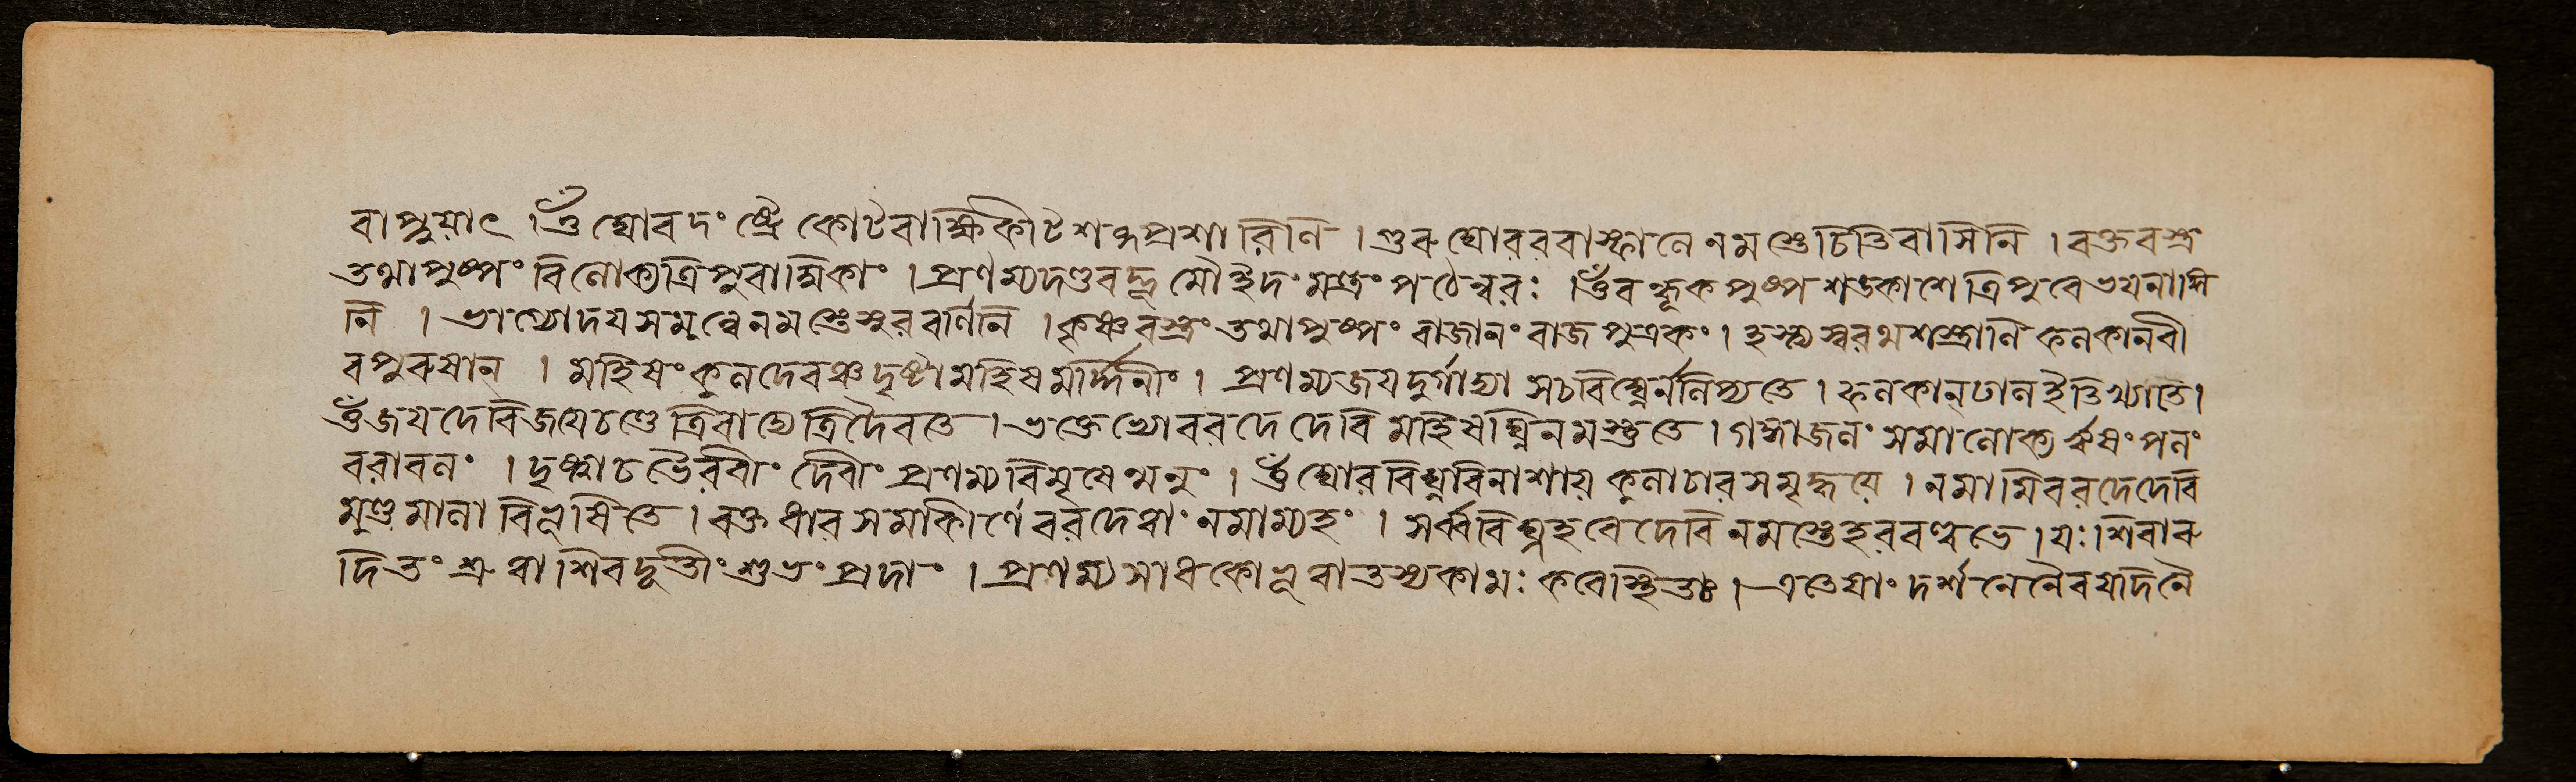 বাপ্নুয়াৎ । ওঁ ঘোরদংষ্ট্রে কোটরাক্ষি কীটশব্দপ্রশারিণি । গুরুঘোররবাস্ফালে নমস্তে চিতিবাসিনি । রক্তবস্ত্রং
তথাপুষ্পং বিলোক্যত্রিপুরাম্বিকাং । প্রণম্যদণ্ডবদ্ভূমৌইদং মন্ত্রং পঠেন্নরঃ । ওঁ বন্ধূকপুষ্পশঙ্কাশে ত্রিপুরেভয়নাশি
নি । ভাগ্যোদয়সমুৎপন্নে নমস্তে সুরবর্ণিনি । কৃষ্ণবস্ত্রং তথাপুষ্পং রাজানং রাজপুত্রকং । হস্ত্যশ্বরথশস্ত্রাণি ফলকান্‌বী
রপুরুষান্‌ । মহিষং কুলদেবঞ্চ দৃষ্ট্বা মহিষমর্দ্দিনীং । প্রণম্যজয়দুর্গাম্বা সচবিঘ্নৈর্নলিপ্যতে । ফলকান্‌ঢালইতিখ্যাতি ।
ওঁ জয়দেবিজগদ্ধাত্রি ত্রিপুরাদ্যে ত্রিদৈবতে । ভক্তেভ্যোবরদে দেবি মহিষঘ্নি নমস্তুতে । মদ্যভাজনং সমালোক্য মৎস্যং মাংসং পলং
বরাননং । দৃষ্ট্বাচ ভৈরবীং দেবীং প্রণম্যবিমৃষেন্মনুং । ওঁ ঘোরবিঘ্নবিনাশায় কুলাচারসমৃদ্ধয়ে । নমামিবরদেদেবি
মুণ্ডমালাবিভূষিতে । রক্তধারসমাকীর্ণে বরদেত্বাং নমাম্যহং । সর্ব্ববিঘ্নহরে দেবি নমস্তেহরবল্লভে । যঃ শিবারু
দিতং শ্রুত্বা শিবদূতীং শুভং প্রদাং । প্রণম্যসাধকোভূত্বাতস্যকামঃ করেস্থিতঃ । এতেষাং দর্শনেনৈব যদিনৈ